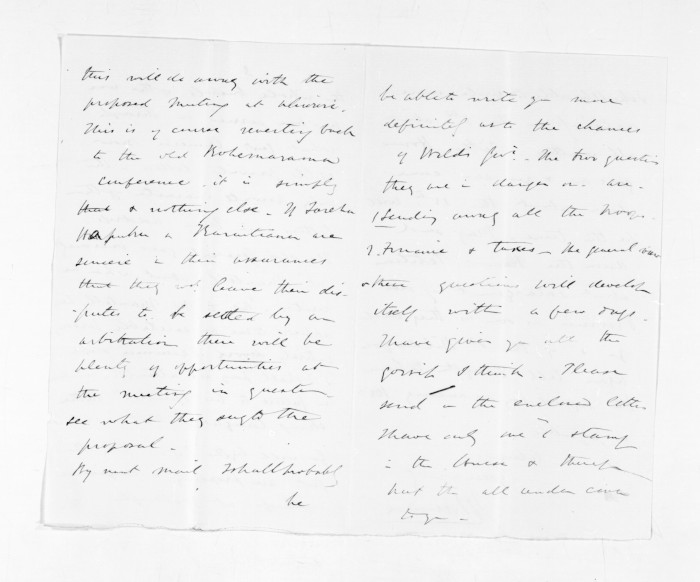 this will do away with the
proposed meeting at
This is of course reverting back
to the old Kohemarama
conference. it is simply
that & nothing else. If Tareha
Hapuku & Karaitiana are
sincere in their assurances
that they will leave their dis-
-putes to be settled by an
arbitration there will be
plenty of opportunities at
the meeting in question
see what they say to the
proposal -
By next mail I shall probably
be
be able to write you more
definitely as to the chances
of Weld's Govt. The two questions
they are in danger on are -
1 Sending away all the troops
2. Finance & taxes - the general view
these questions will develop
itself with a few days.
I have given you all the
gossip I think. Please
send on the enclosed letter
I have only one stamp
in the House &
put the all under cover
to you -